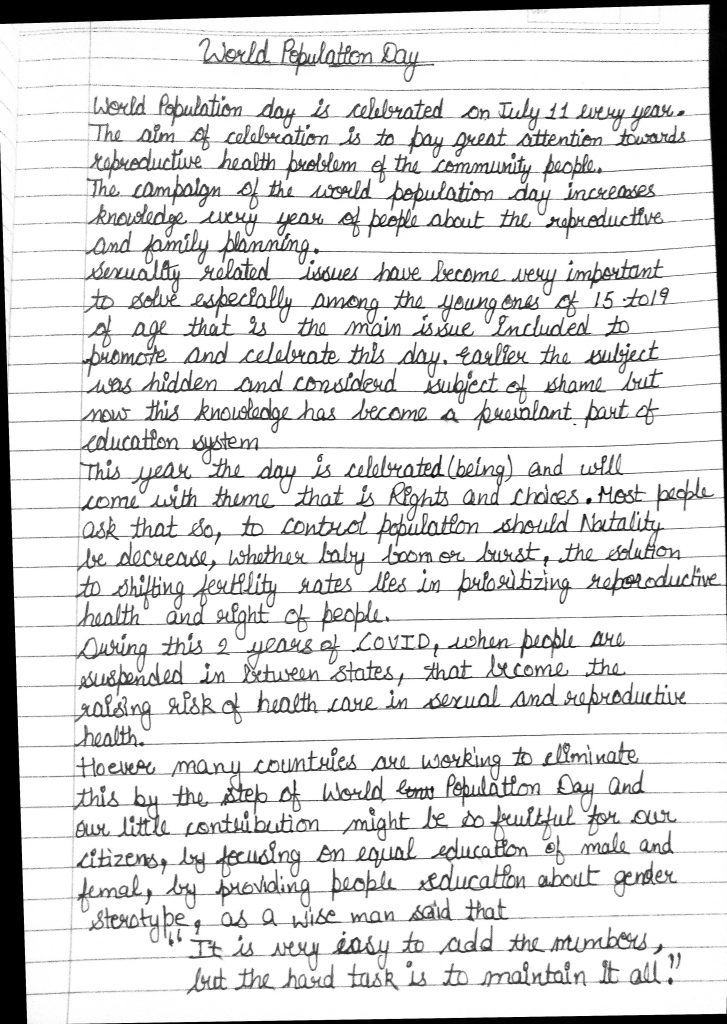 World Population Day
World Population day is celebrated on July 11 every year.
The aim of celebration is to pay great attention towards
reproductive health problem of the community people.
The campaign of the world population day increases
knowledge every year of people about the reproductive
and family planning.
Sexuality related issues have become very important
to solve especially among the young ones of 15 to 19
of age that is the main issue included to
promote and celebrate this day. Earlier the subject
was hidden and considerd subject of shame but
now this knowledge has become a prevalant part of
education system
This year the day is celebrated (being) and will
come with theme that is Rights and choices. Most people
ask that so, to control population should Natality
be decrease, whether baby boom or burst, the solution
to shifting fertility rates lies in prioritizing reporoductive
health and right of people.
During this 2 years of COVID, when people are
suspended in between states, that become the
raising risk of health care in sexual and reproductive
health.
Hoever many countries are working to eliminate
this by the step of World Population Day and
our little contribution might be so fruitful for our
citizens, by focusing on equal education of male and
femal, by providing people education about gender
sterotype, as a wise man said that
"It is very easy to add the numbers,
but the hard task is to maintain it all."